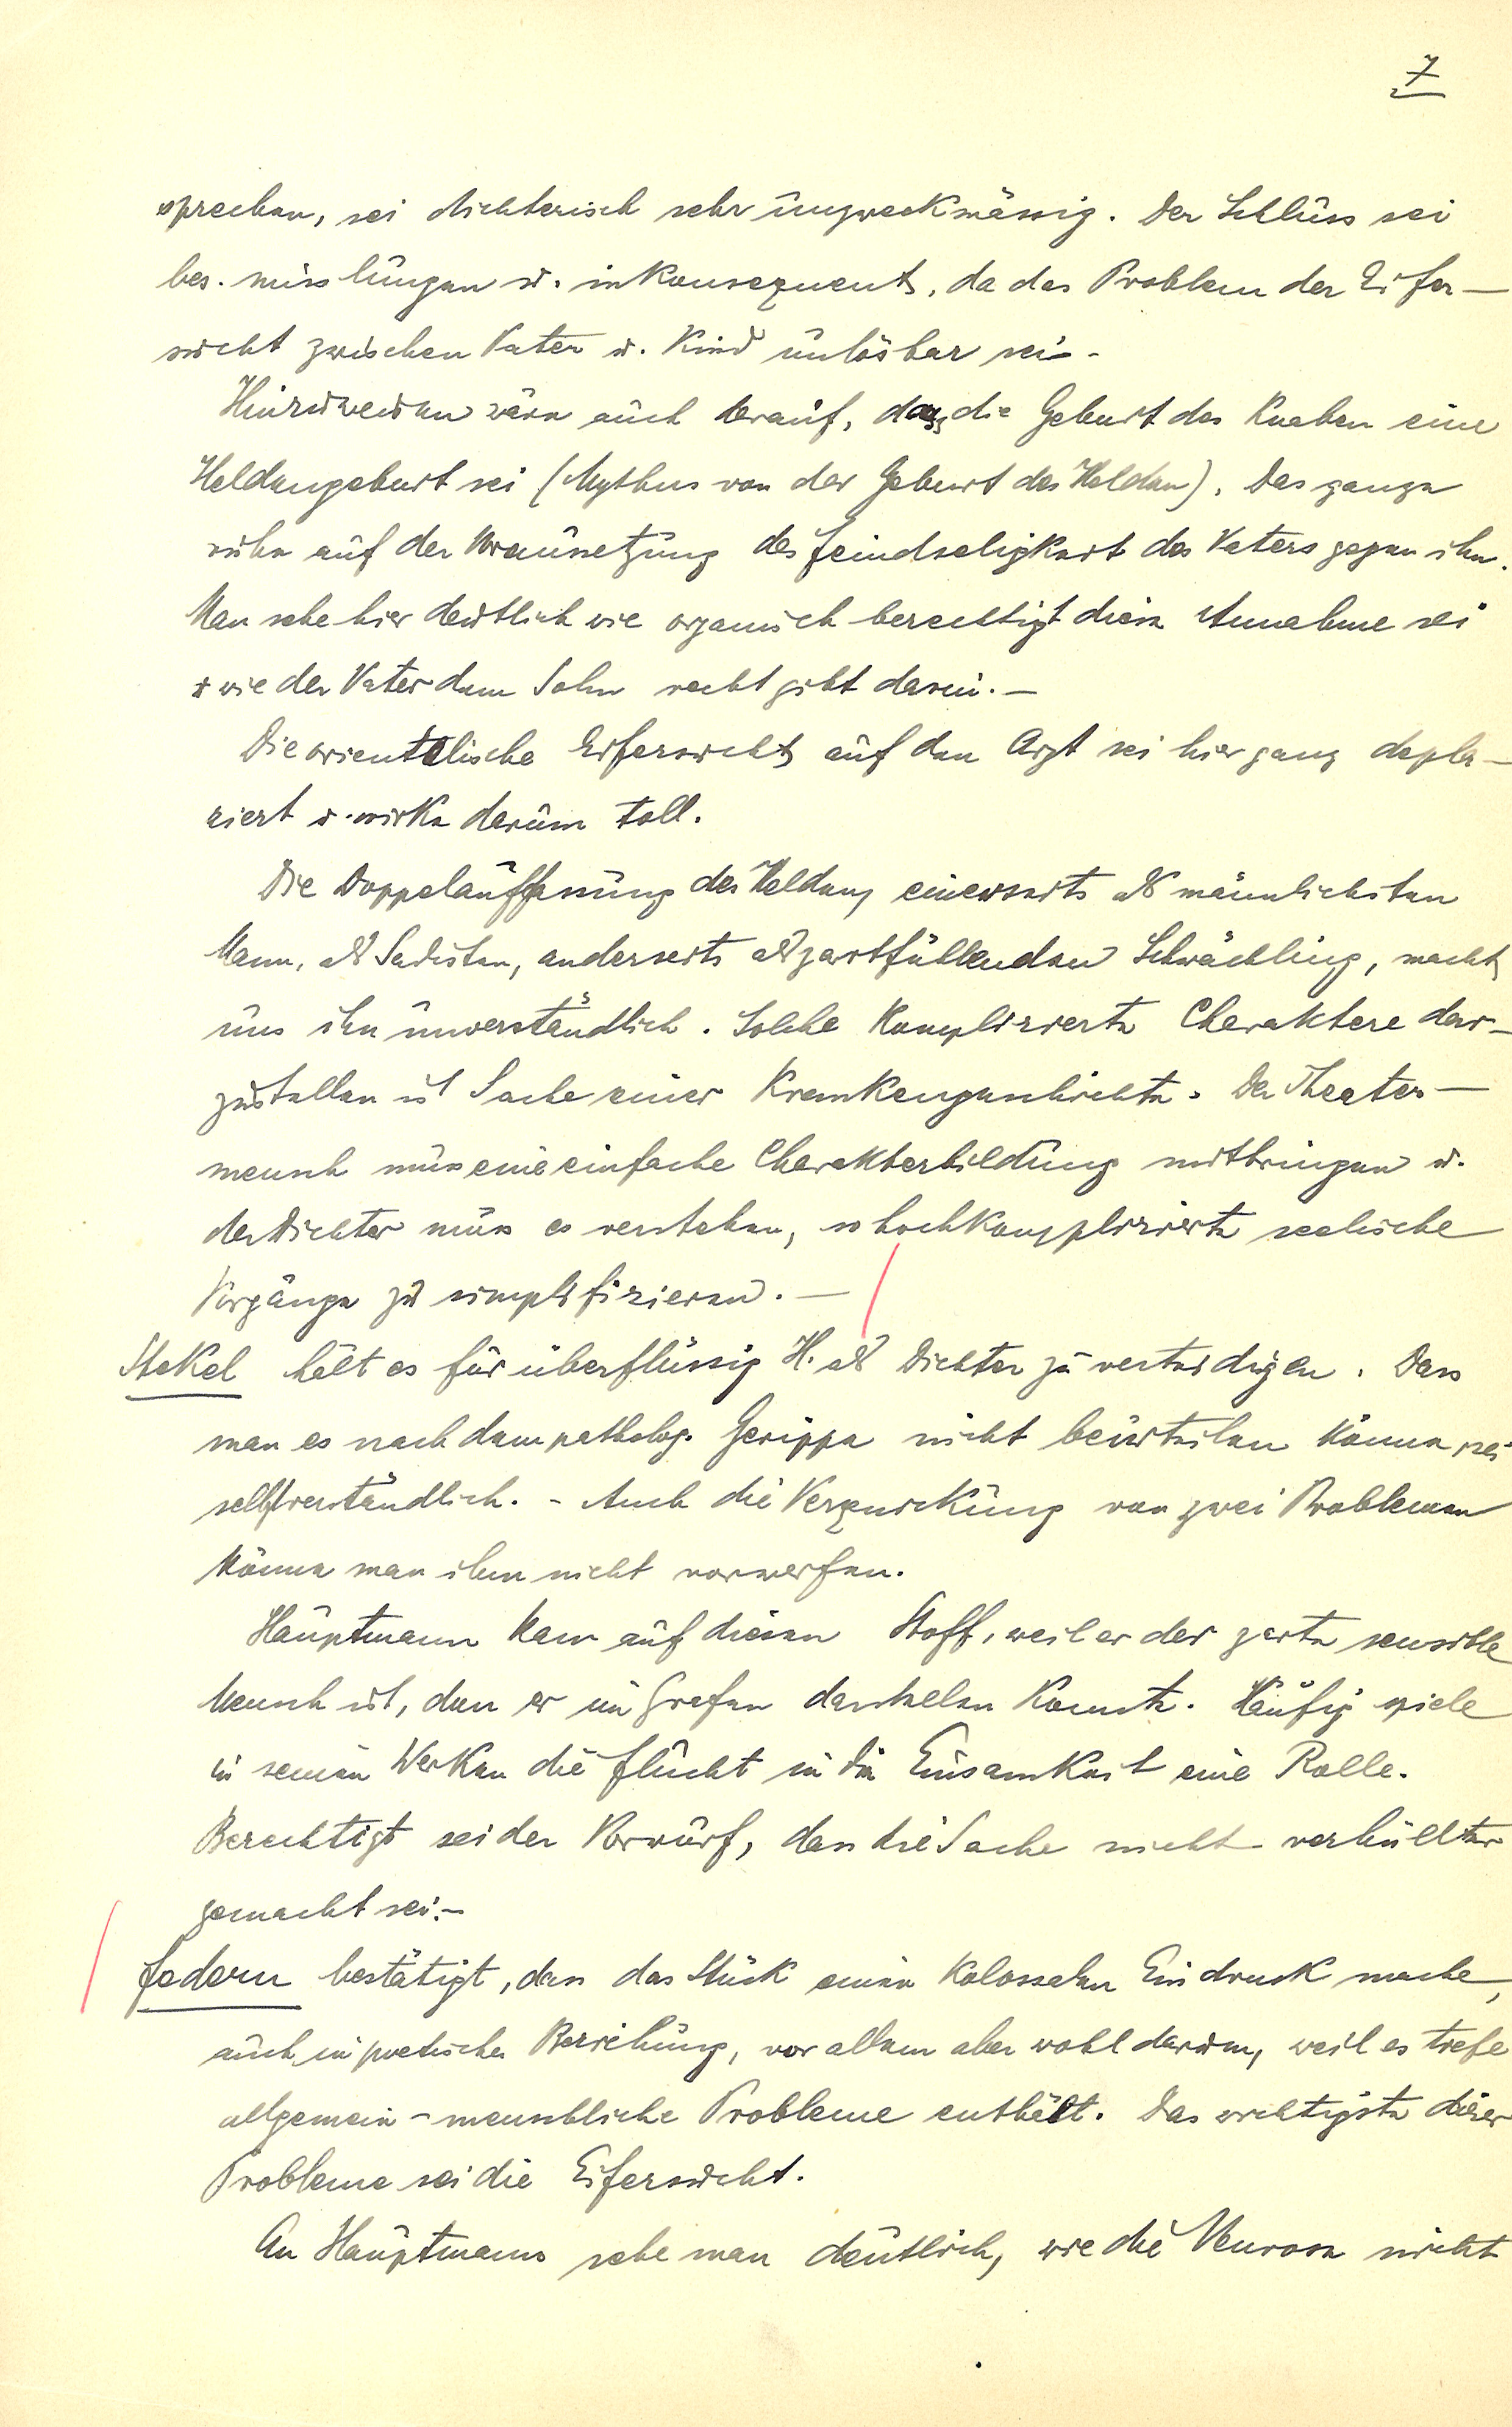 7
sprechen, sei dichterisch sehr unzweckmässig. Der Schluss sei
bes. misslungen u. inkonsequent, da das Problem der Eifer-
sucht zwischen Vater u. Kind unlösbar sei.-
Hinzuweisen wäre auch darauf, dass die Geburt des Knaben eine
Heldengeburt sei (Mythus von der Geburt des Helden). Das ganze
ruhe auf der Voraussetzung der Feindseligkeit des Vaters gegen ihn.
Man sehe hier deutlich wie organisch berechtigt diese Annahme sei
u wie der Vater dem Sohn recht gibt darin.-
Die orientalische Eifersucht auf den Arzt sei hier ganz depla-
ziert u. wirke darum toll.
Die Doppelauffassung des Helden, einerseits als männlichsten
Mann, als Sadisten, anderseits als zartfühlenden Schwächling, macht
uns ihn unverständlich. Solche komplizierte Charaktere dar-
zustellen ist Sache einer Krankengeschichte. Der Theater-
mensch muss eine einfache Charakterbildung mitbringen u.
der Dichter muss es verstehen, so hochkomplizierte seelische
Vorgänge zu simplifizieren.-
Stekel hält es für überflüssig H. als Dichter zu verteidigen. Dass
man es nach dem patholog. Gerippe nicht beurteilen könne, sei
selbstverständlich. - Auch die Verquickung von zwei Problemen
könne man ihm nicht vorwerfen.
Hauptmann kam auf diesen Stoff, weil er der zarte sensible
Mensch ist, den er im Grafen darstellen konnte. Häufig spiele
in seinen Werken die Flucht in die Einsamkeit eine Rolle.
Berechtigt sei der Vorwurf, dass die Sache nicht verhüllter
gemacht sei.-
Federn bestätigt, dass das Stück einen kolossalen Eindruck mache,
auch in poetischer Beziehung, vor allem aber wohl darum, weil es tiefe
allgemein-menschliche Probleme enthält. Das wichtigste dieser
Probleme sei die Eifersucht.
An Hauptmann sehe man deutlich, wie die Neurose nicht